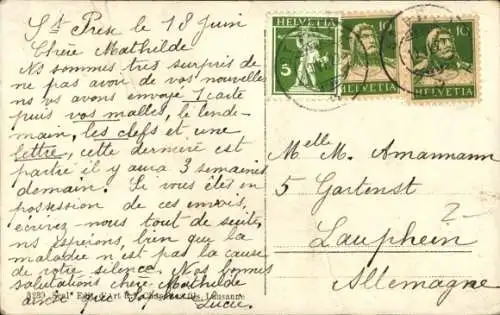 St Prex le 18 Juin
Chère Mathilde
Nos sommes très surpris de
ne pas avoir de vos nouvelles
ns vs avons envoyé 1 carte
puis vos malles, le lende-
main, les clefs et une
lettre, cette dernière est
partie il y aura 3 semaines
demain. Si vous êtes en
possession de ces envois,
écrivez-nous tout de suite,
ns espérons, bien que la
maladie n'est pas la cause
de votre silence. Nos bonnes
salutations chère Mathilde
ainsi que
Lucie.
Lausanne
HELVETIA
5
10
HELVETIA
10
HELVETIA
Melle M. Amannann
5 Gartenst
Laupheim
?
Allemagne